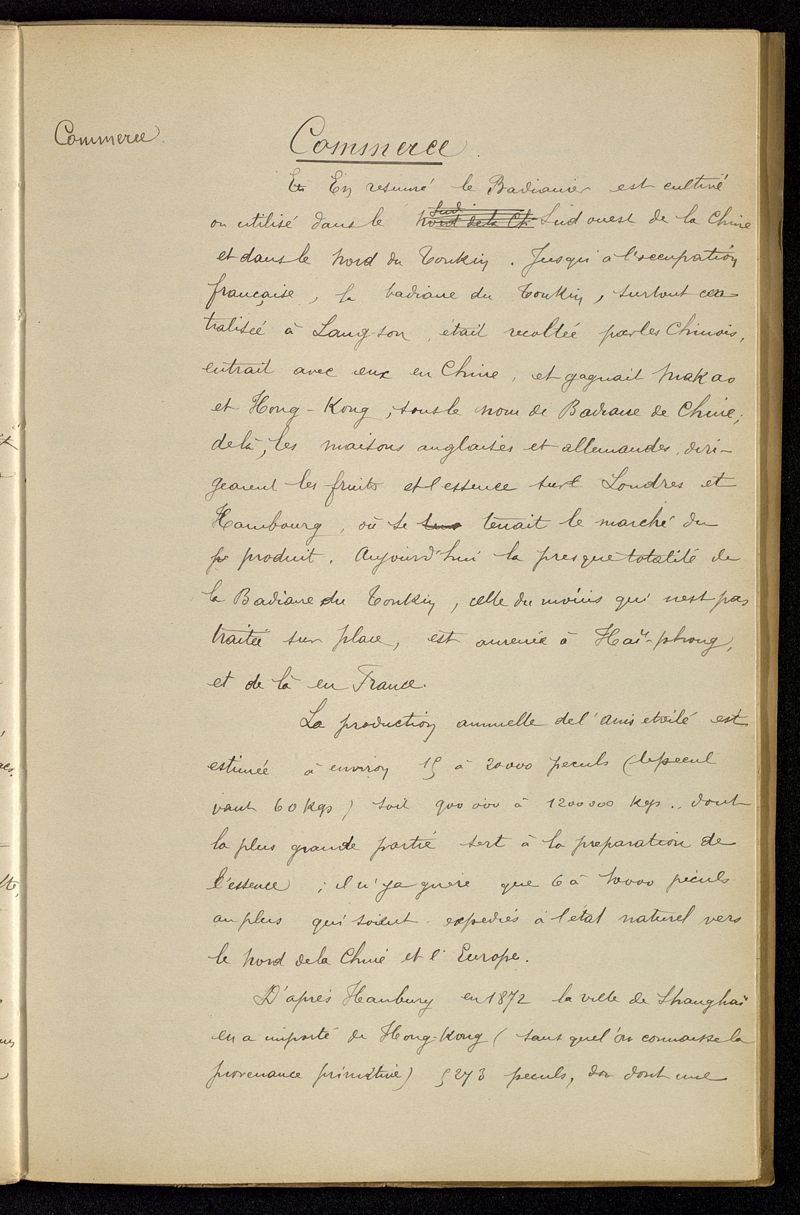 Commerce.
Commerce.
En En resumé le Badianier est cultivé
ou utilisé dans le nord de la Ch. Sud Sud ouest de la Chine
et dans le nord du Tonkin. Jusqu'à l'occupation
française, la badiane du Tonkin, surtout cen
tralisée à Langson, était recoltée par les Chinois,
entrait avec eux en Chine, et gagnait Makao
et Hong-Kong, sous le nom de Badiane de Chine;
de là, les maisons anglaises et allemandes, diri-
geaient les fruits et l'essence sur Londres et
Hambourg, où se tenait le marché du
p produit. Aujourd'hui la presque totalité de
la Badiane du Tonkin, celle du moins qui n'est pas
traitée sur place, est amenée à Haï-phong,
et de là en France.
La production annuelle de l'anis etoilé est
estimée à environ 15 à 20000 peculs (le pecul
vaut 60 kgs) soit 900 000 à 1200000 kgs.. dont
la plus grande partie sert à la preparation de
l'essence ; il n'y a guere que 6 à 10000 peculs
au plus qui soient expediés à l'état naturel vers
le nord de la Chine et l'Europe.
D'après Hanbury en 1872 la ville de Shanghaï
en a importé de Hong-Kong (sans que l'on connaisse la
provenance primitive) 5273 peculs, don dont une